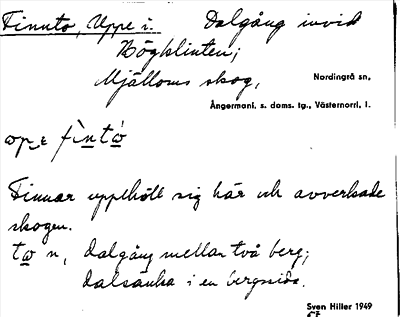 Finnto, Uppe i. Dalgång invid
Högklinten;
Mjälloms skog, Nordingrå sn,
Ångermanl. s. doms. tg., Västernorrl. l.
Finnar upphöll sig här och avverkade
skogen.
n, dalgång mellan två berg;
dalsänka i en bergssida.
Sven Hiller 1949